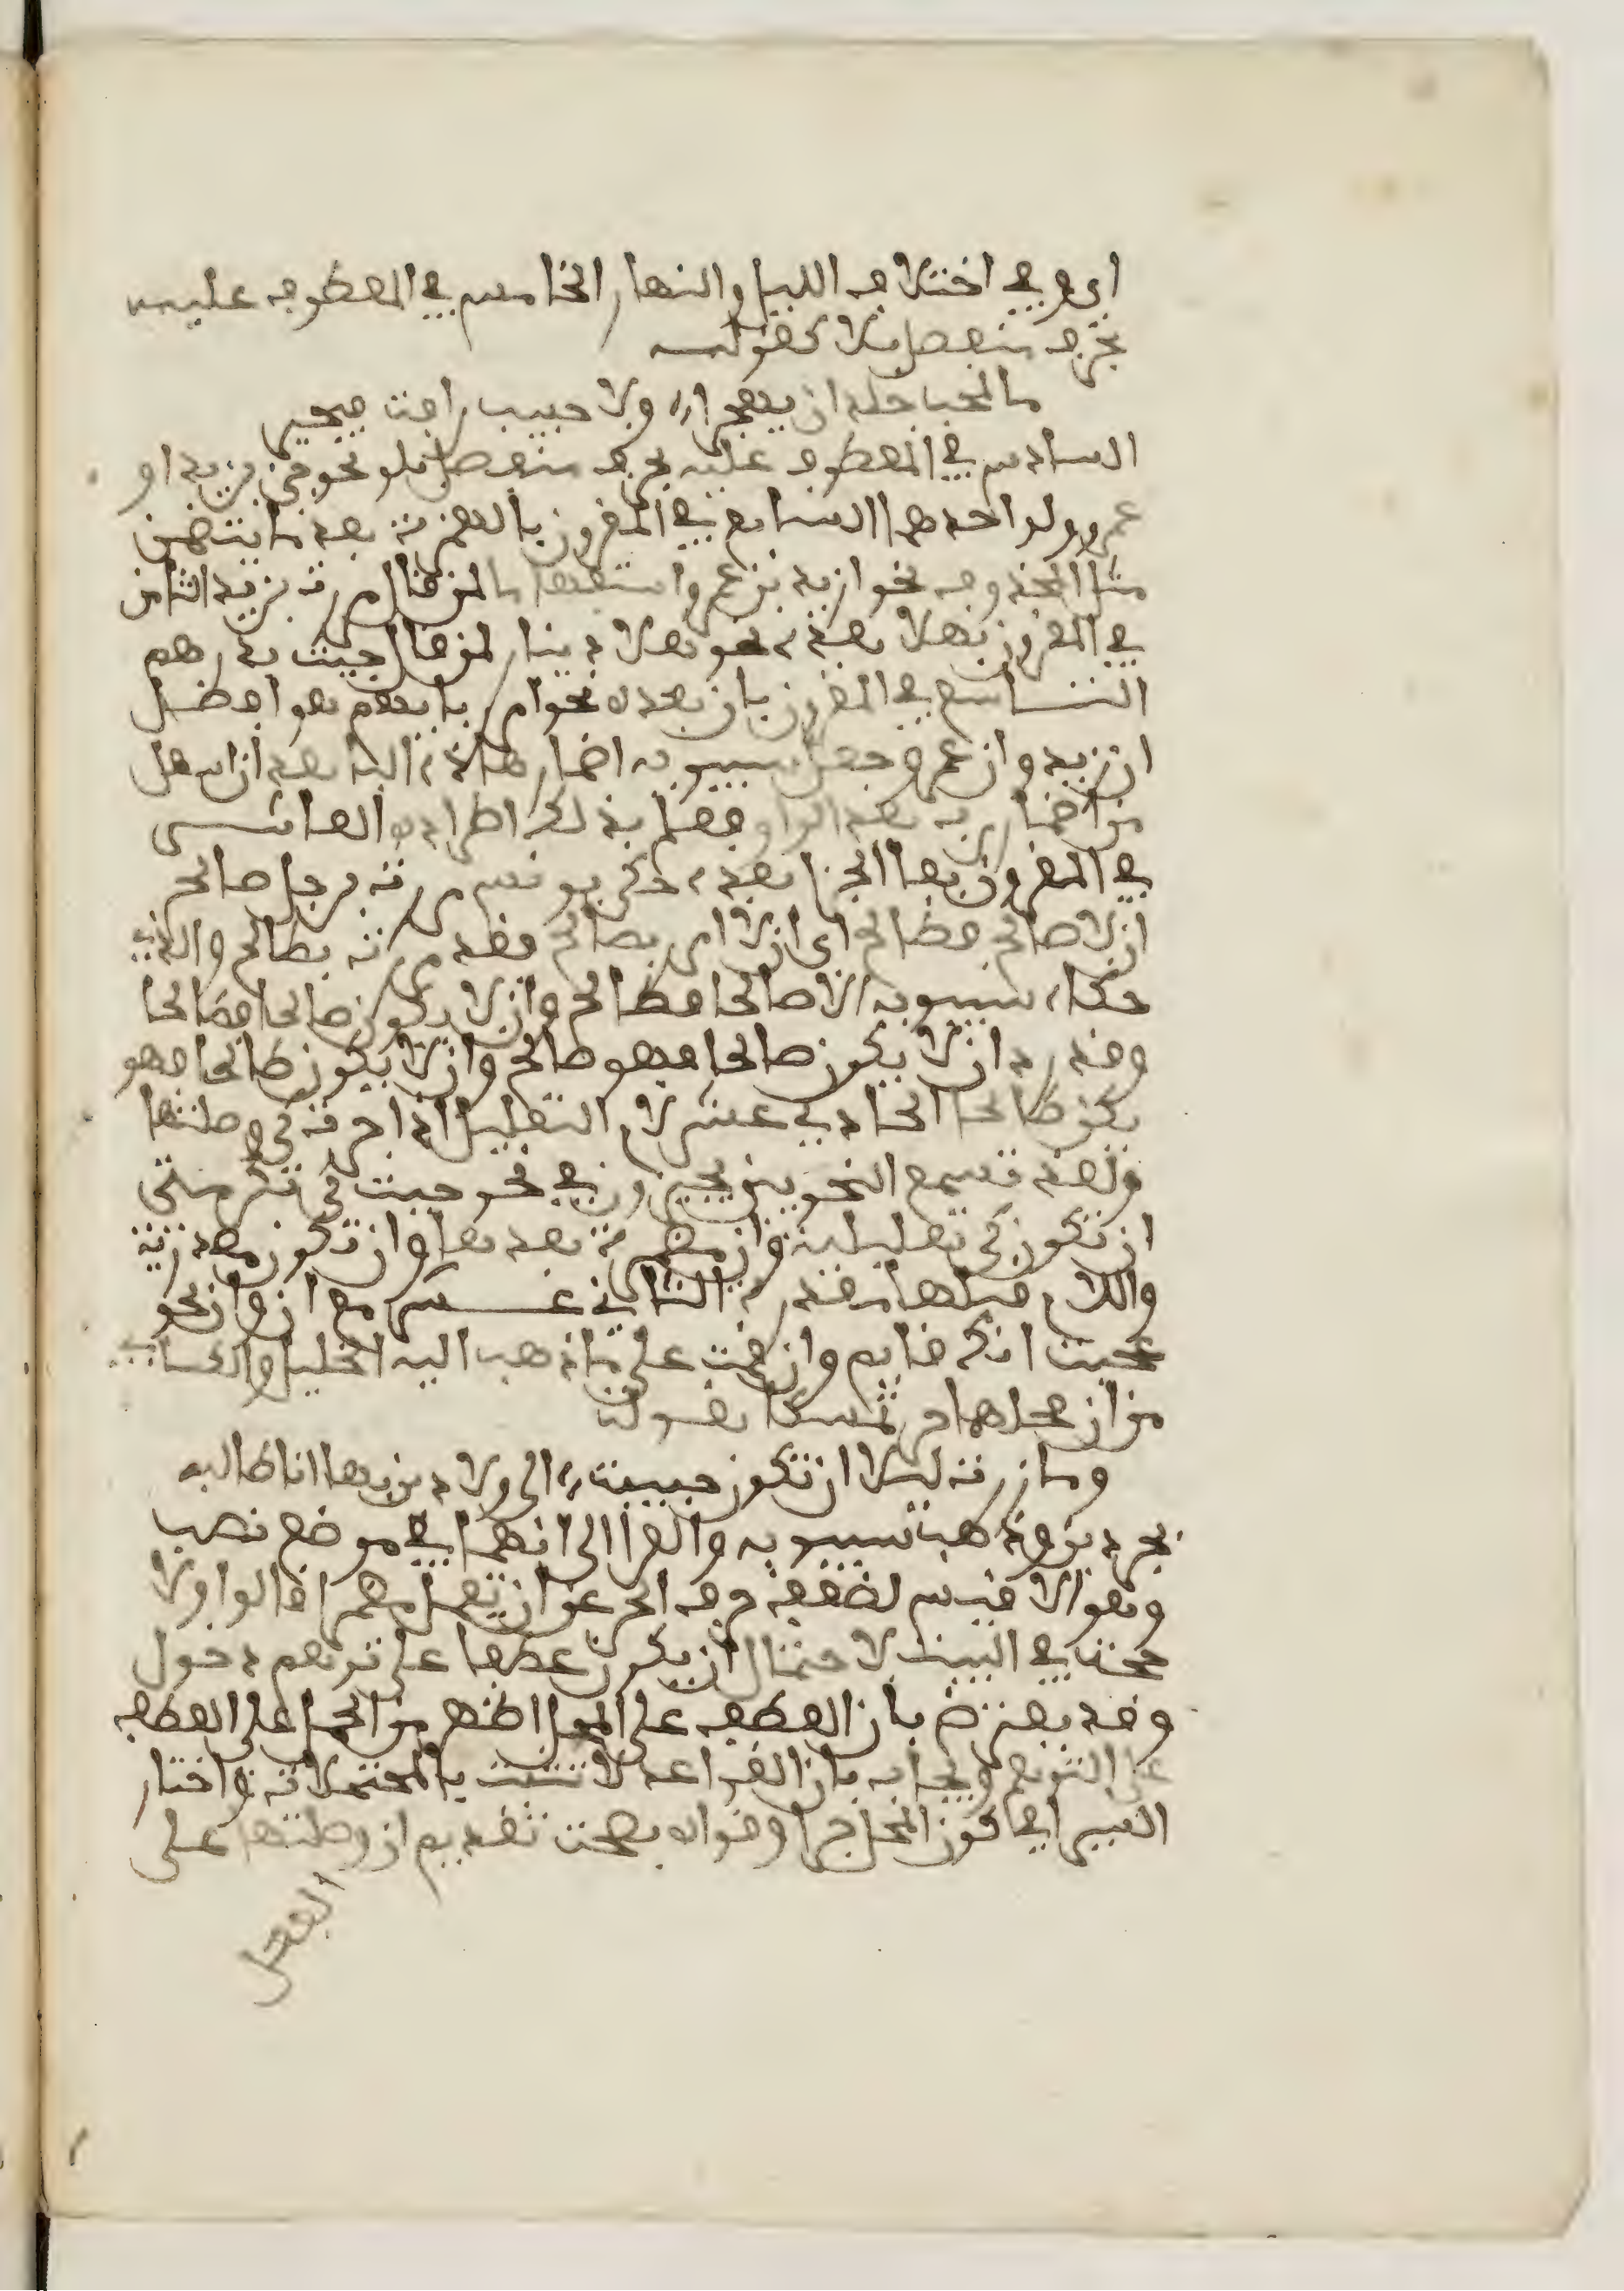 اى وفي اختلاف الليل والنهار الخامس في المعطوف عليه
بحرف منفصل بلا كقوله
ما لمحب جلد ان يهجرا ولا حبيب رافة فيجبر
السادس في المعطوف عليه بحرف منفصل بلو نحو جي بزيد او
عمرو ولو احدهما السابع في المقرون بالهمزة بعد ما يتضمن
مثل المحذوف نحو ازيد بن عمرو استفهاما لمن قال مررت بزيد الثامن
في المقرون بهلا بعده نحو هلا دينار لمن قال جيت بدرهم
التاسع في المقرون بان بعده نحو امرر بايهم هو افضل
ان زيد وان عمرو وجعل سيبويه اضمار هاذه البا بعد ان اسهل
من اضمار رب بعد الواو فعلم بذلك اطراده العاشر
في المقرون بفا الجزا بعده حكى يونس مررت برجل صالح
ان لا صالح فطالح اى ان لا امر بصالح فقد مررت بطالح والذي
حكاه سيبويه الا صالحا فطالح وان لا يكون صالحا فطالحا
وقدره ان لا يكون صالحا فهو طالح وان لا يكون صالحا فهو
يكن طالحا الحادي عشر لام التعليل اذا جرت كي وصلتها
ولهذ تسمع النحويين يجيزون في نحو جيت كي تكرمني
ان تكون كي تعليلية وان مضمرة بعدها وان تكون مصدرية
واللام قبلها مقدرة الثاني عشر مع ان وان نحو
عجبت انك قايم وان قمت على ما ذهب اليه الخليل والكساي
من ان محلهما جر تمسكا بقوله
وما زرت ليلا ان تكون حبيبة الي ولا دين بها انا طالبه
بجر دين وذهب سيبويه والفرا الى انهما في موضع نصب
وهو الاقيس لضعف حرف الجر عن ان يعمل مضمرا قالوا ولا
حجة في البيت لاحتمال ان يكون عطفا على توهم دخول
وقد يعترض بان العطف على المحل اظهر من الحمل على العطف
على التوهم ويجاب بان القواعد لا تثبت بالمحتملات واختار
السيرافي كون المحل جرا وقواه بصحة تقديم ان وصلتها على
الفعل